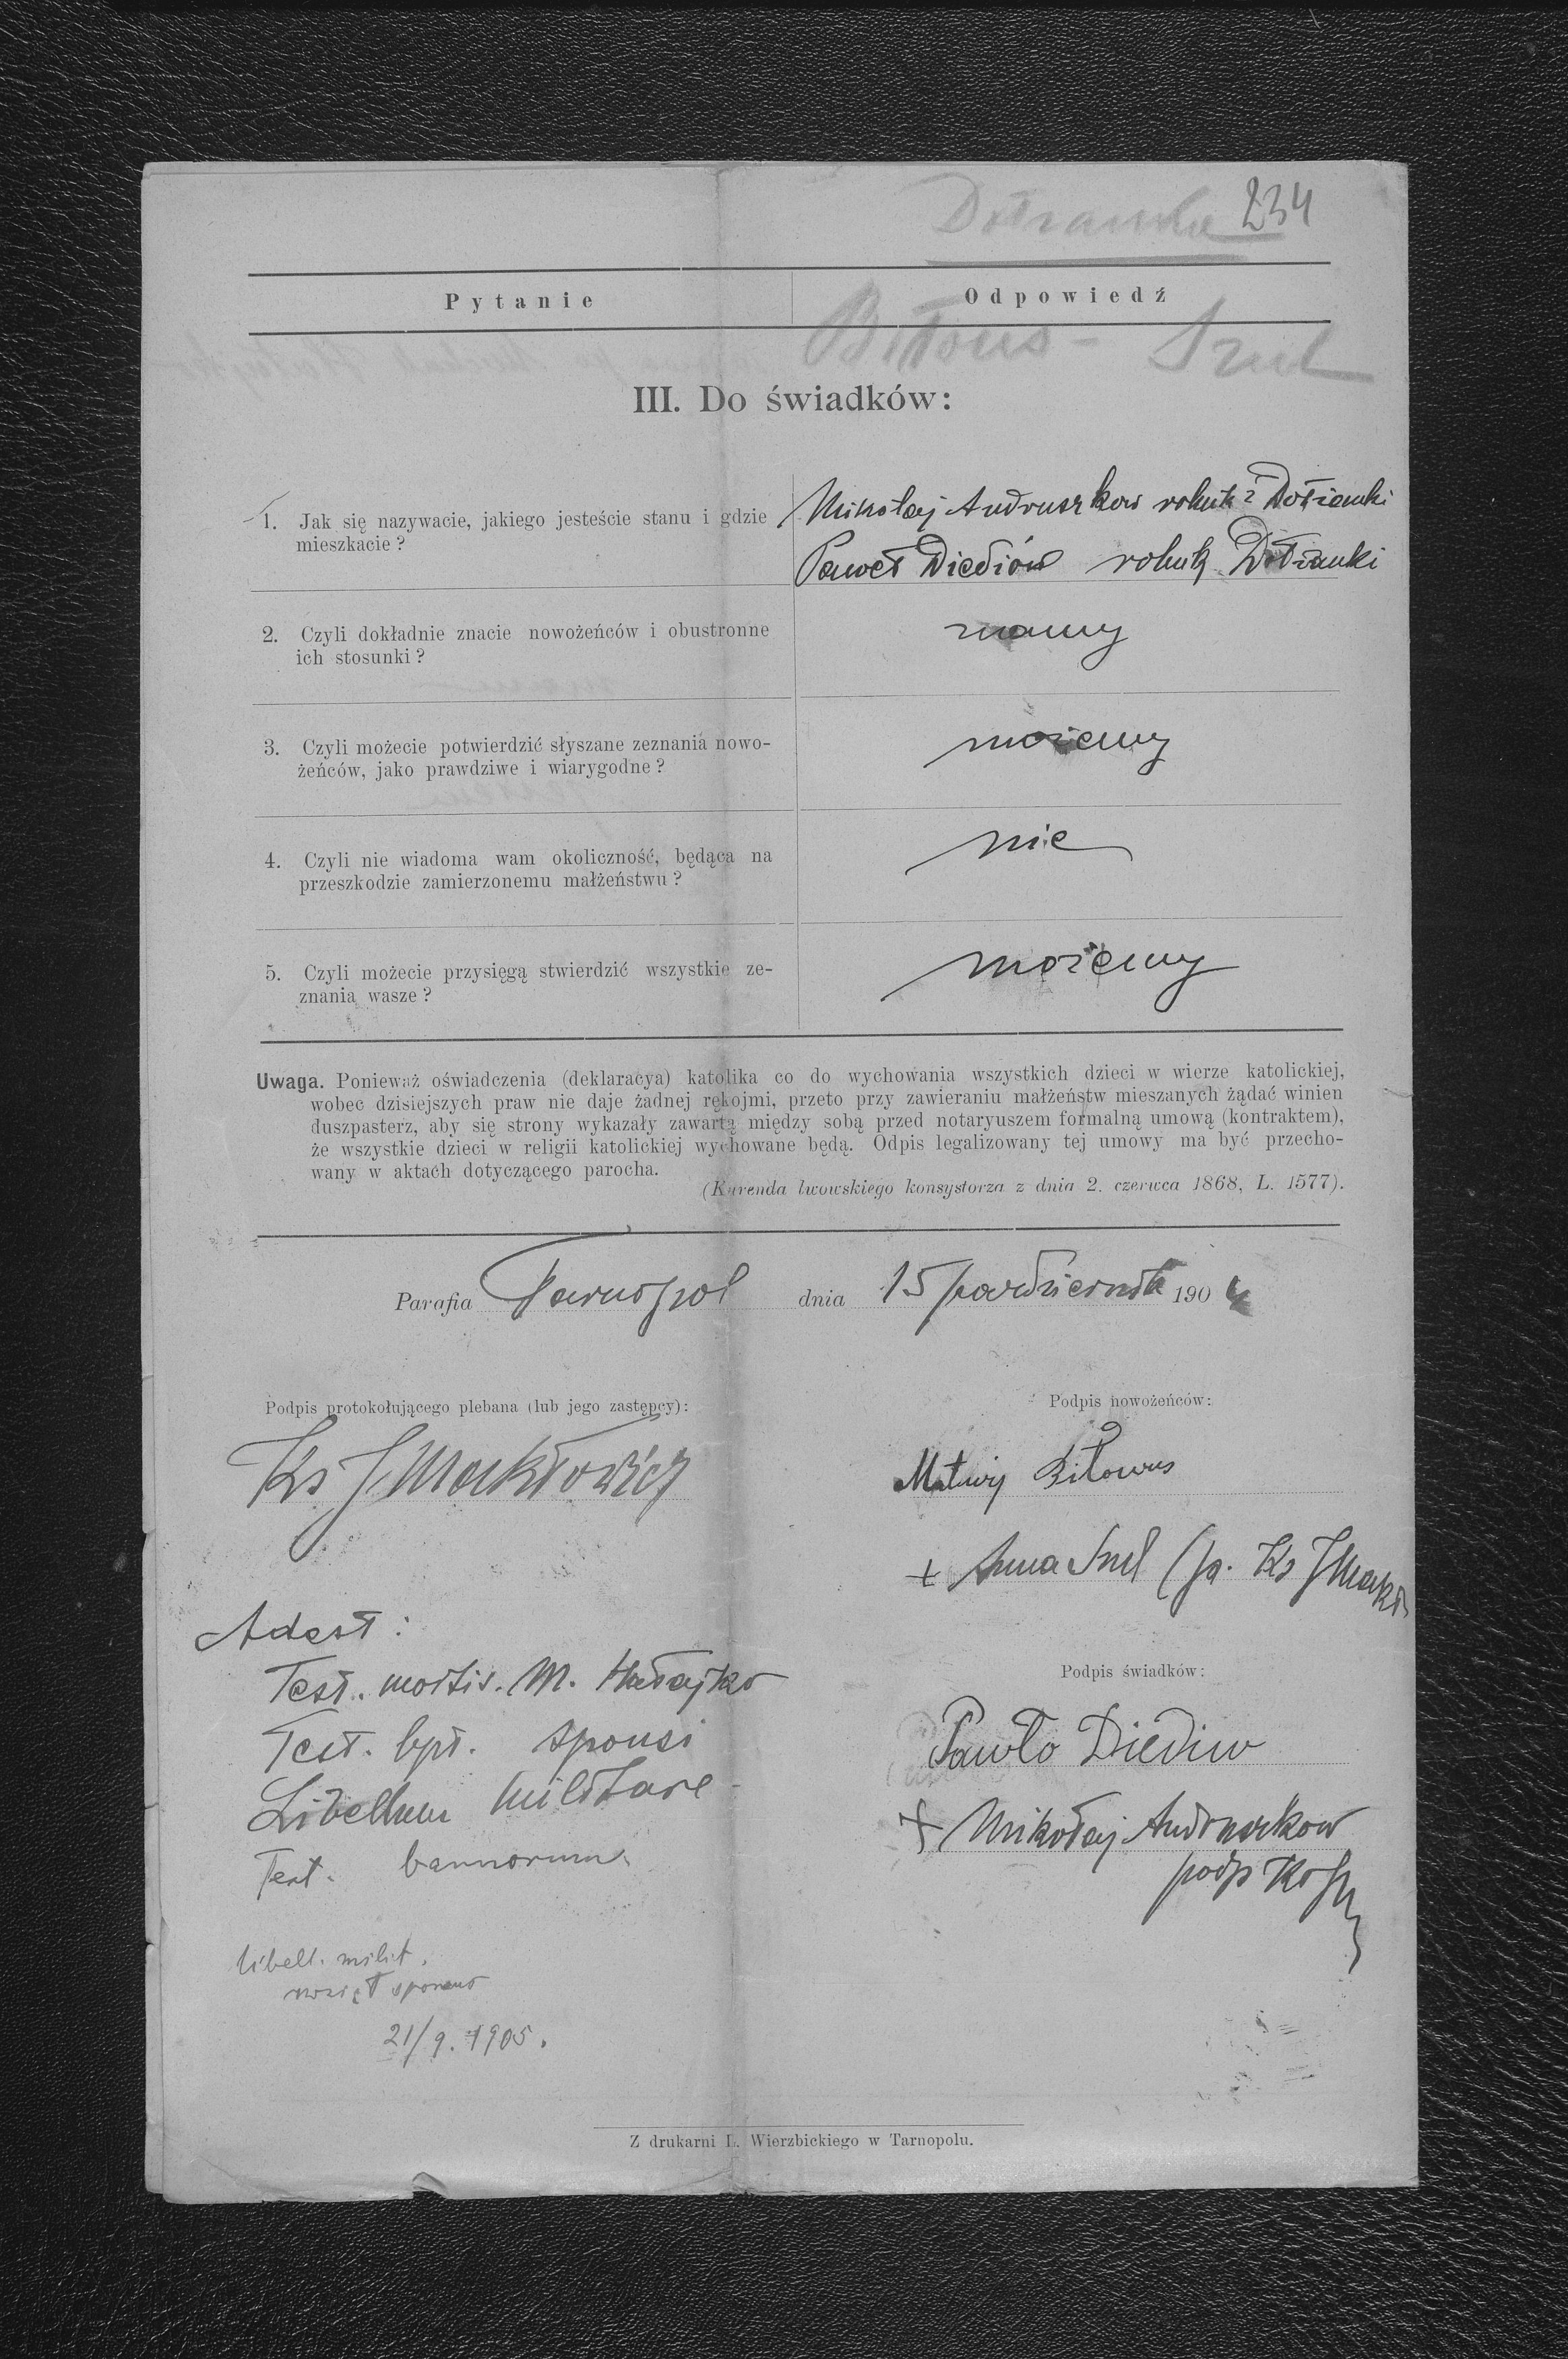 Dołżanka 234
Pytanie
Odpowiedź
Biłous - Szul
III. Do świadków:
1. Jak się nazywacie, jakiego jesteście stanu i gdzie
mieszkacie?
Mikołaj Andruszkow rolnik z Dołżanki
Paweł Diediów rolnik Dołżanki
2. Czyli dokładnie znacie nowożeńców i obustronne
ich stosunki?
znamy
3. Czyli możecie potwierdzić słyszane zeznania nowo-
żeńców, jako prawdziwe i wiarygodne?
możemy
4. Czyli nie wiadoma wam okoliczność, będąca na
przeszkodzie zamierzonemu małżeństwu?
nie
5. Czyli możecie przysięgą stwierdzić wszystkie ze-
znania wasze?
możemy
Uwaga. Ponieważ oświadczenia (deklaracya) katolika co do wychowania wszystkich dzieci w wierze katolickiej,
wobec dzisiejszych praw nie daje żadnej rękojmi, przeto przy zawieraniu małżeństw mieszanych żądać winien
duszpasterz, aby się strony wykazały zawartą między sobą przed notaryuszem formalną umową (kontraktem),
że wszystkie dzieci w religii katolickiej wychowane będą. Odpis legalizowany tej umowy ma być przecho-
wany w aktach dotyczącego parocha.
(Kurenda lwowskiego konsystorza z dnia 2. czerwca 1868, L. 1577).
Parafia Tarnopol dnia 15 października 1904
Podpis protokołującego plebana (lub jego zastępcy):
Ks J Makłowicz
Podpis nowożeńców:
Matwij Biłows
+ Anna Szul (p. Ks J Makł
Adest:
Test. mortis. M. Hałajko
Test. bpt. sponsi
Libellum militare
Test. bannorum
Podpis świadków:
Pawło Diediw
+ Mikołaj Andruszkow
podp
libell. milit.
wziął sponsus
21/9. 1905.
Z drukarni L. Wierzbickiego w Tarnopolu.